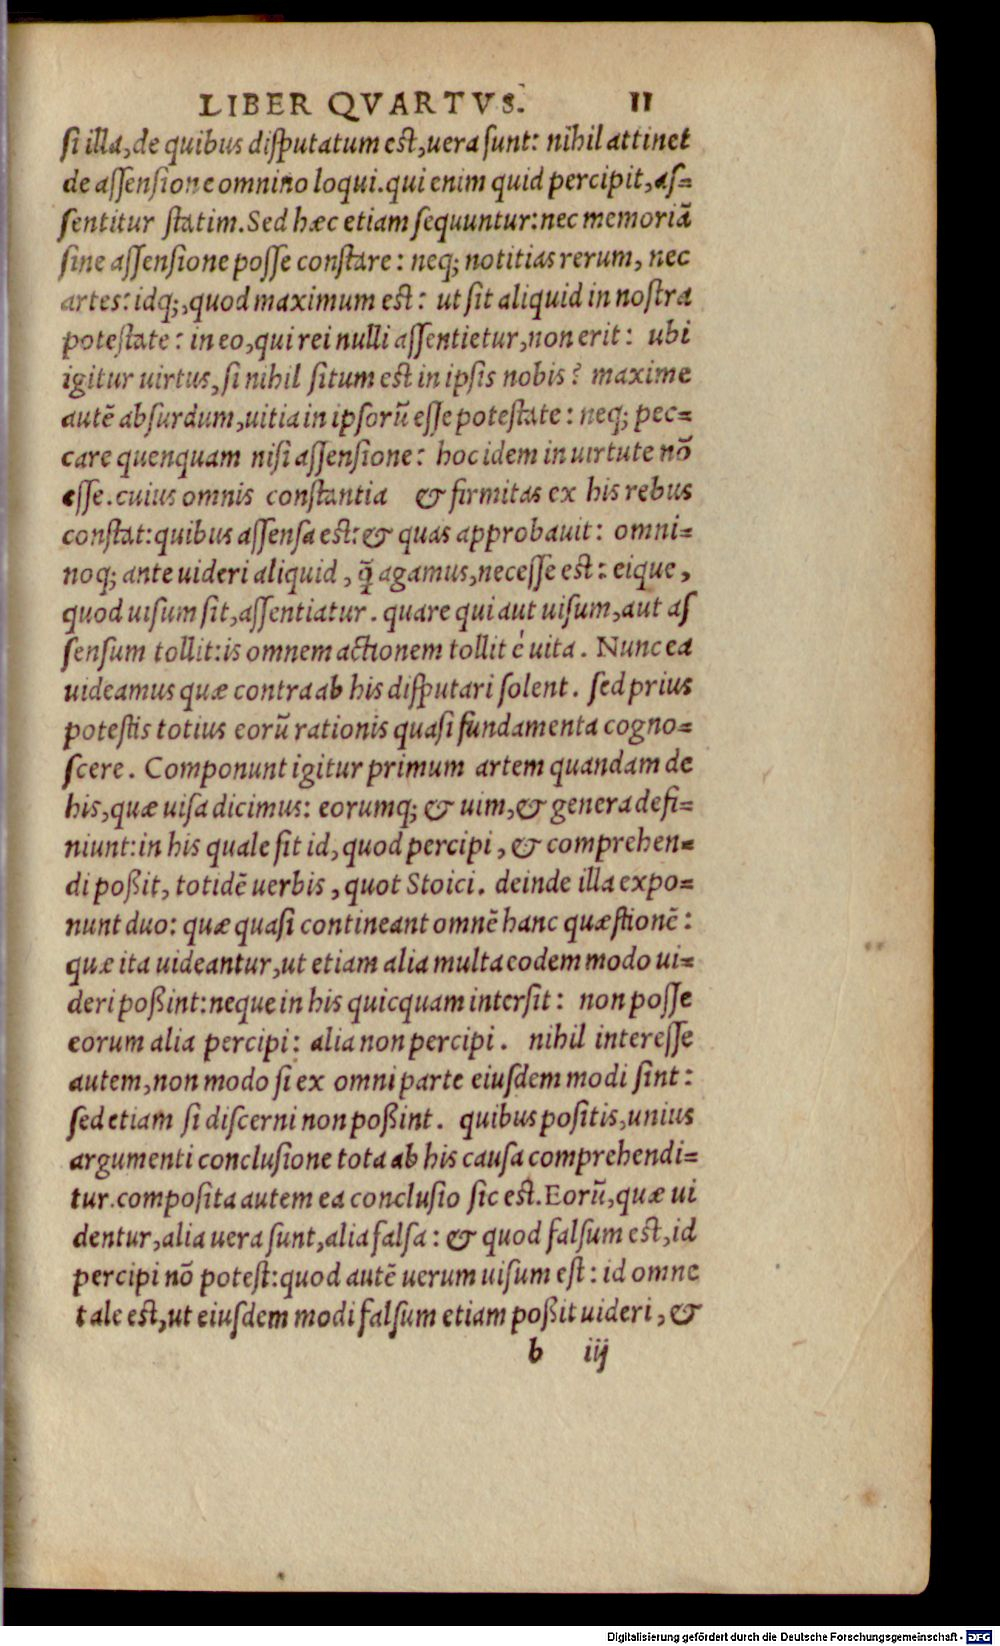 LIBER QVARTVS. 11
si illa, de quibus disputatum est, uera sunt: nihil attinet
de assensione omnino loqui. qui enim quid percipit, as=
sentitur statim. Sed hæc etiam sequuntur: nec memoriā
sine assensione posse constare: neq; notitias rerum, nec
artes: idq;, quod maximum est: ut sit aliquid in nostra
potestate: in eo, qui rei nulli assentietur, non erit: ubi
igitur uirtus, si nihil situm est in ipsis nobis? maxime
autē absurdum, uitia in ipsorū esse potestate: neq; pec=
care quenquam nisi assensione: hoc idem in uirtute nō
esse. cuius omnis constantia & firmitas ex his rebus
constat: quibus assensa est: & quas approbauit: omni=
noq; ante uideri aliquid, q̄ agamus, necesse est: eique,
quod uisum sit, assentiatur. quare qui aut uisum, aut as
sensum tollit: is omnem actionem tollit é uita. Nunc ea
uideamus quæ contra ab his disputari solent. sed prius
potestis totius eorū rationis quasi fundamenta cogno=
scere. Componunt igitur primum artem quandam de
his, quæ uisa dicimus: eorumq; & uim, & genera defi=
niunt: in his quale sit id, quod percipi, & comprehen=
di poßit, totidē uerbis, quot Stoici. deinde illa expo=
nunt duo: quæ quasi contineant omnē hanc quæstionē:
quæ ita uideantur, ut etiam alia multa eodem modo ui=
deri poßint: neque in his quicquam intersit: non posse
eorum alia percipi: alia non percipi. nihil interesse
autem, non modo si ex omni parte eiusdem modi sint:
sed etiam si discerni non poßint. quibus positis, unius
argumenti conclusione tota ab his causa comprehendi=
tur. composita autem ea conclusio sic est. Eorū, quæ ui
dentur, alia uera sunt, alia falsa: & quod falsum est, id
percipi nō potest: quod autē uerum uisum est: id omne
tale est, ut eiusdem modi falsum etiam poßit uideri, &
b iij
Digitalisierung gefördert durch die Deutsche Forschungsgemeinschaft - DFG